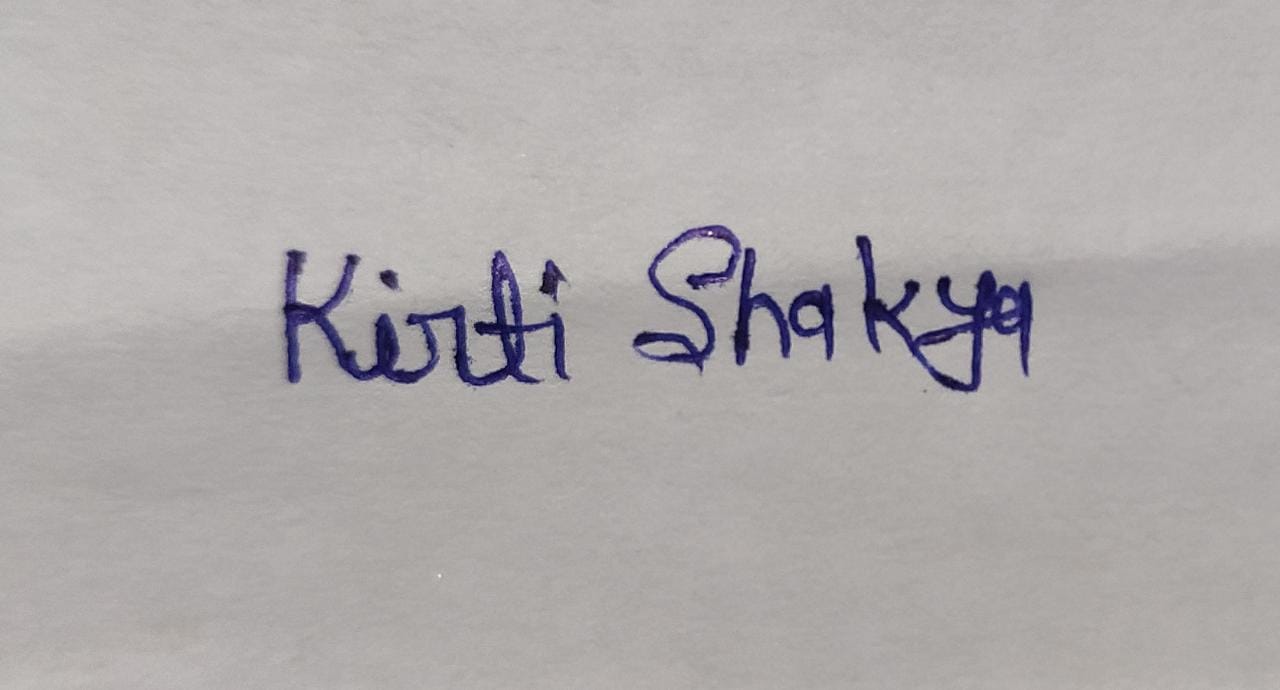 Kirti Shakya